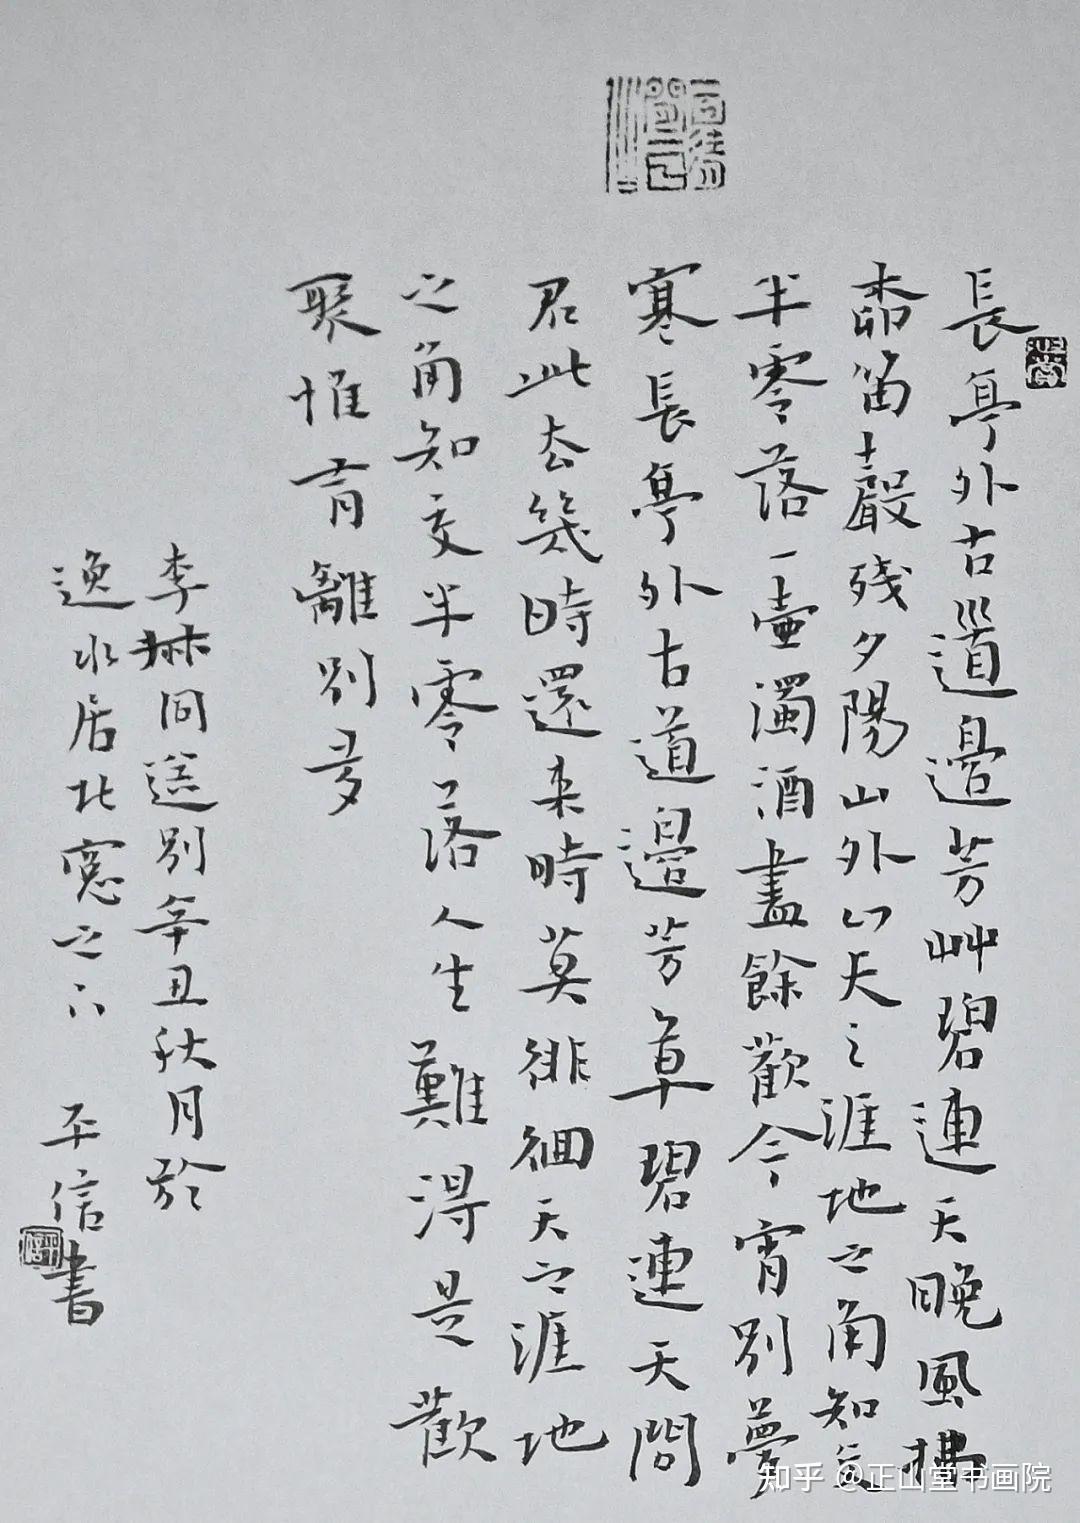 長亭外古道邊芳艸碧連天晚風拂
柳笛聲殘夕陽山外山天之涯地之角知交
半零落一壺濁酒盡餘歡今宵別夢
寒長亭外古道邊芳草碧連天問
君此去幾時還来時莫徘徊天之涯地
之角知交半零落人生難得是歡
聚惟有離別多
李叔同送別辛丑秋月於
逸水居北窓之下 平信書
知乎 @正山堂书画院